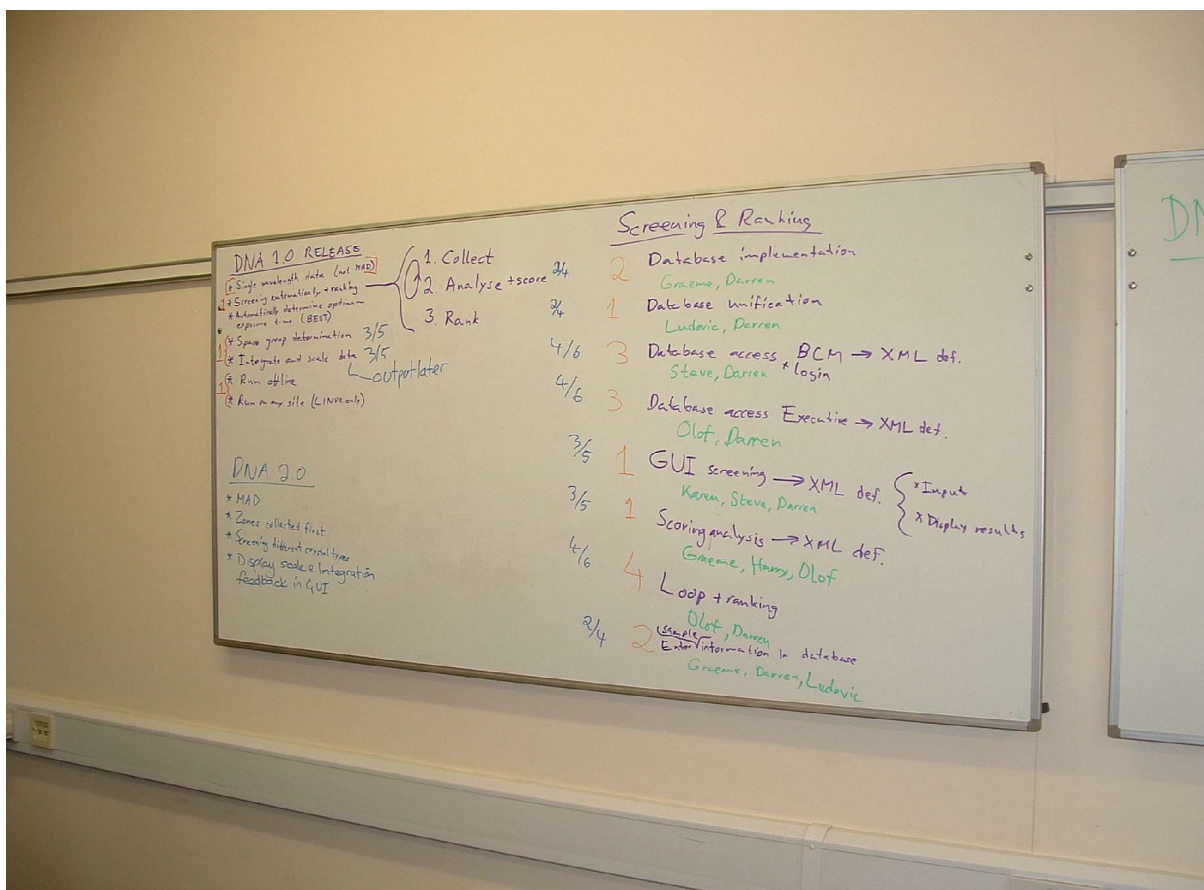 DNA 1.0 RELEASE
* Single wavelength data (not MAD)
1 * Screening automatically + ranking
* Automatically determine optimum
exposure time (BEST)
* Space group determination 3/5
1 * Integrate and scale data 3/5
output later
* Run offline
1
* Run on any site (LINUX only)
1. Collect
2. Analyse + score
3. Rank
DNA 2.0
* MAD
* Zones collected first
* Screening different crystal types
* Display scale & Integration
feedback in GUI
Screening & Ranking
2/4 2 Database implementation
Graeme, Darren
2/4 1 Database unification
Ludovic, Darren
4/6 3 Database access BCM → XML def.
Steve, Darren * login
4/6 3 Database access Executive → XML def.
Olof, Darren
3/5 1 GUI screening → XML def. * Input
Karen, Steve, Darren * Display results
3/5 1 Scoring analysis → XML def.
Graeme, Harry, Olof
4/6 4 Loop + ranking
Olof, Darren
sample
2/4 2 Enter information in database
Graeme, Darren, Ludovic
DN